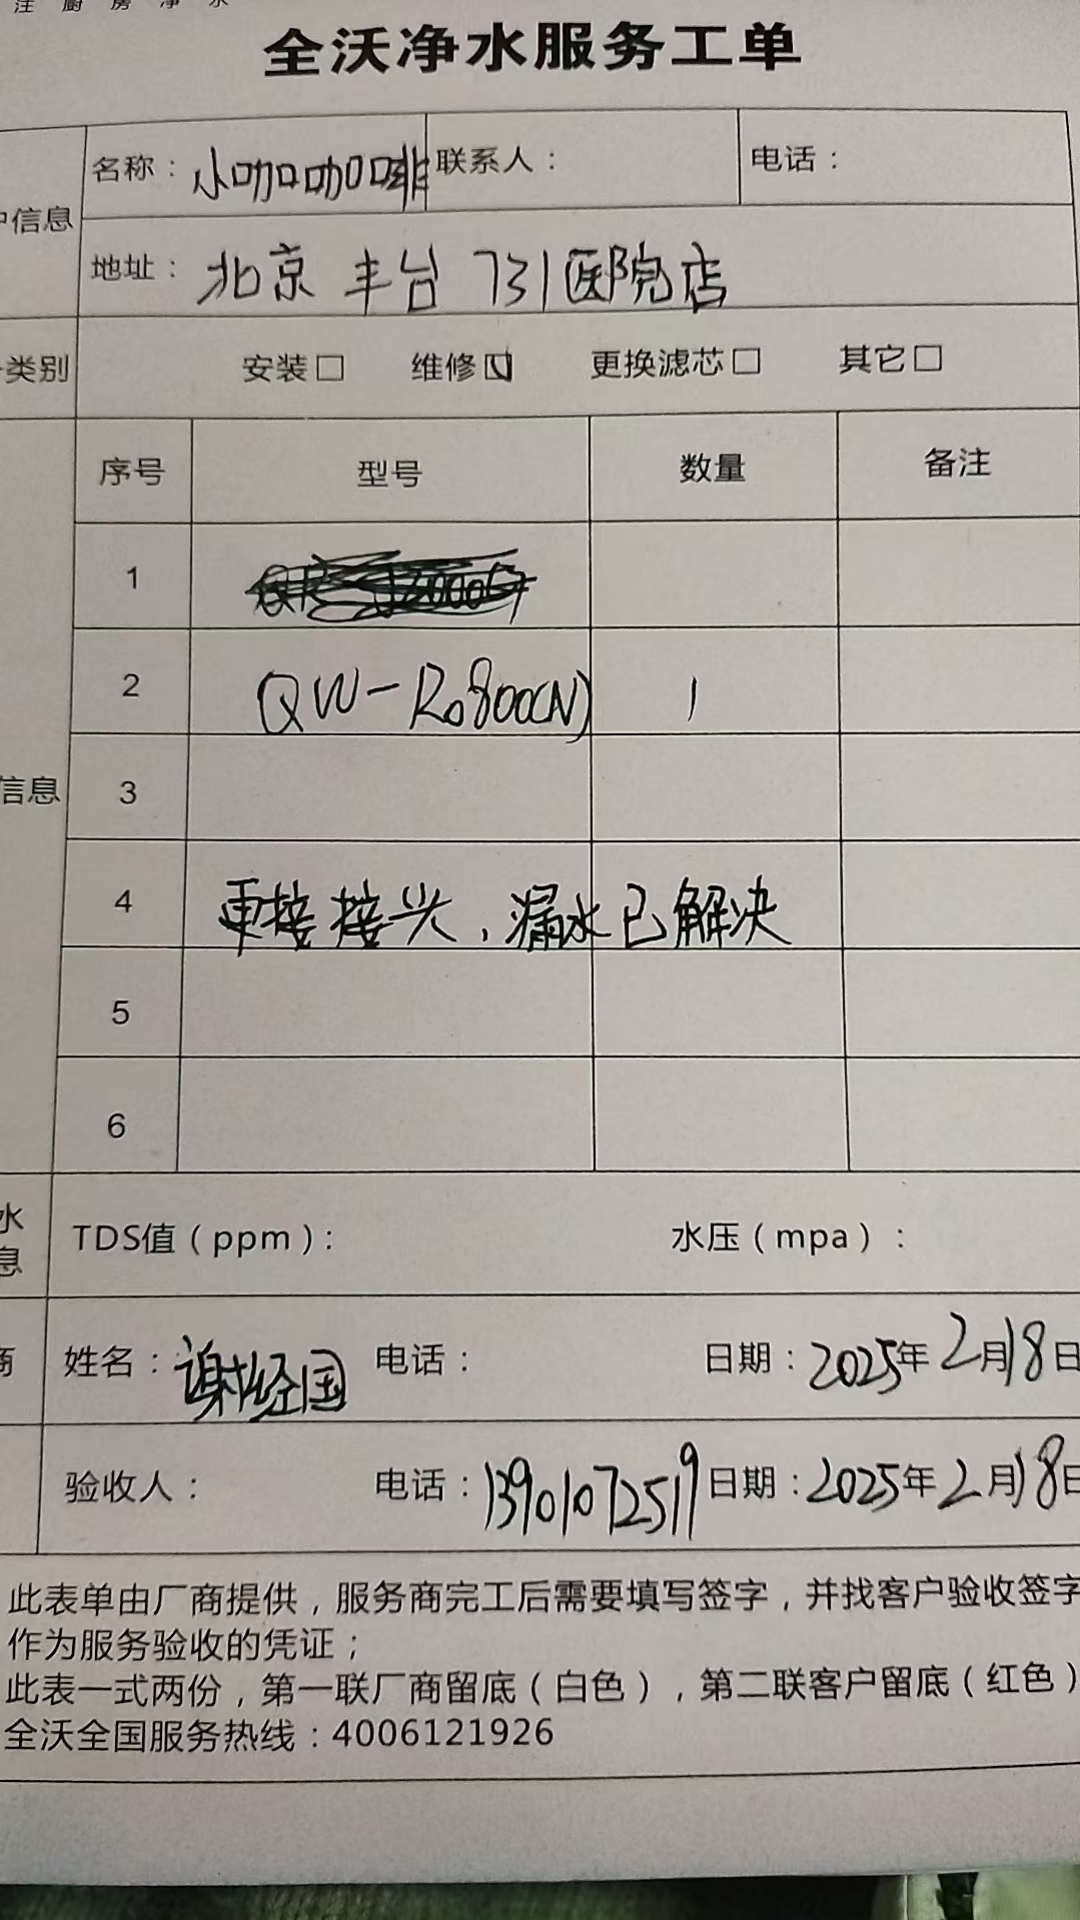 注厨房净水
全沃净水服务工单
名称：小咖咖啡 联系人： 电话：
户信息
地址：北京 丰台 731医院店
类别 安装□ 维修☑ 更换滤芯□ 其它□
序号 型号 数量 备注
1
2 QW-Ro800(N) 1
信息 3
4 更接接头，漏水已解决
5
6
水
息
TDS值（ppm）： 水压（mpa）：
商 姓名：谢经国 电话： 日期：2025年2月18日
验收人： 电话：13901072519 日期：2025年2月18日
此表单由厂商提供，服务商完工后需要填写签字，并找客户验收签字
作为服务验收的凭证；
此表一式两份，第一联厂商留底（白色），第二联客户留底（红色）
全沃全国服务热线：4006121926